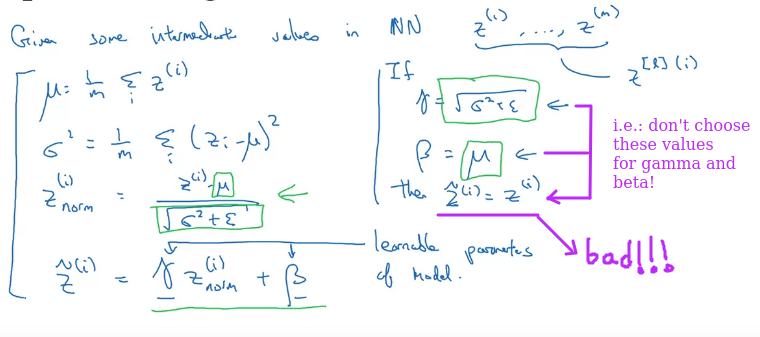 Given some intermediate values in NN z^(i), ..., z^(m)
z^[l](i)
μ = 1/m Σ_i z^(i)
σ² = 1/m Σ_i (z_i - μ)²
z^(i)_norm = (z^(i) - μ) / √(σ² + ε)
z̃^(i) = γ z^(i)_norm + β
learnable parameters
of model.
If
γ = √(σ² + ε)
β = μ
then z̃^(i) = z^(i)
i.e.: don't choose
these values
for gamma and
beta!
bad!!!